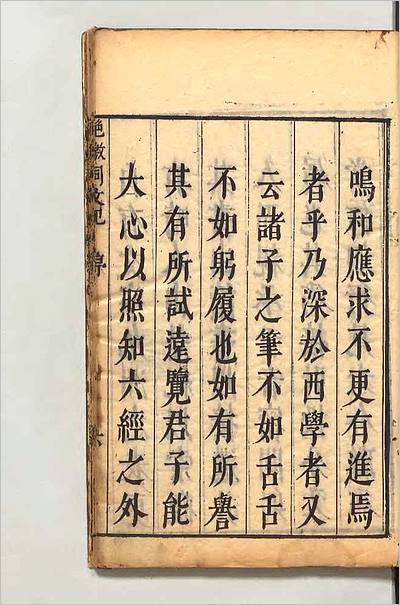 鳴和應求不更有進焉
者乎乃深於西學者又
云諸子之筆不如舌舌
不如躬履也如有所譽
其有所試遠覽君子能
大心以照知六經之外
絶徼同文紀